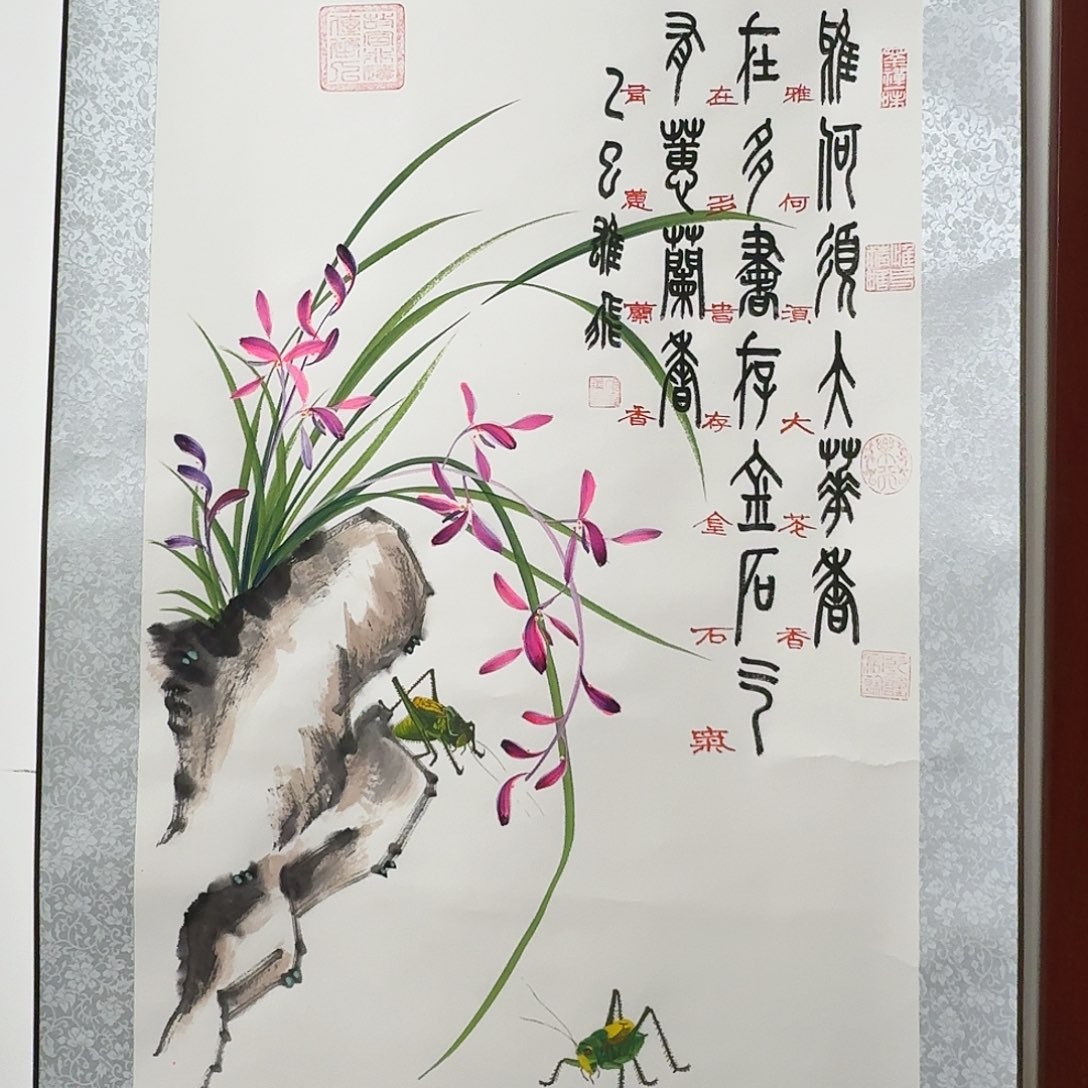 雅何須大華香
雅何須大花香
在多書存金石气
在多書存金石
有蕙蘭香
有蕙蘭香
乙巳雄飛